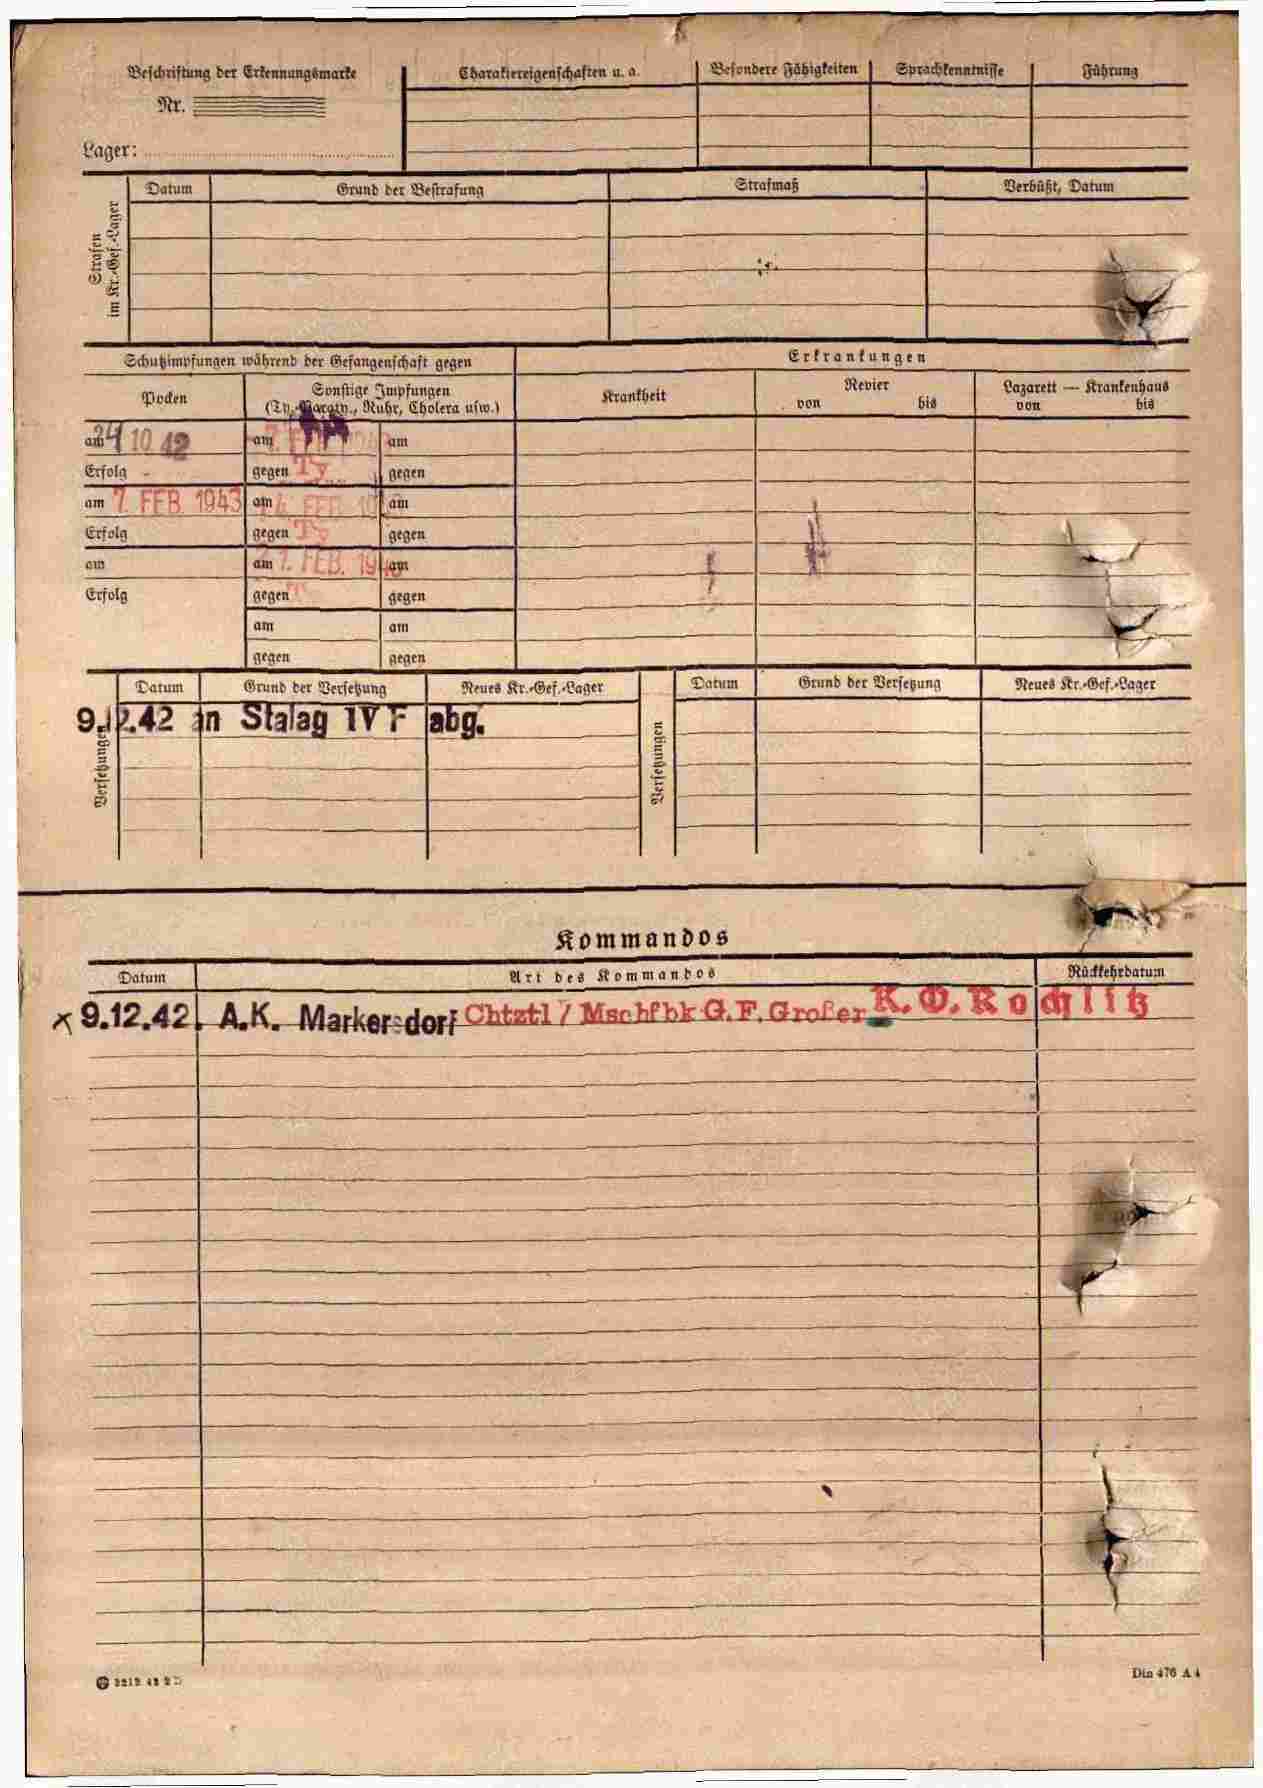 Beschriftung der Erkennungsmarke
Nr.
Lager:
Charaktereigenschaften u. a.
Besondere Fähigkeiten
Sprachkenntnisse
Führung
Strafen
im Kr.-Gef.-Lager
Datum
Grund der Bestrafung
Strafmaß
Verbüßt, Datum
Schutzimpfungen während der Gefangenschaft gegen
Erkrankungen
Pocken
Sonstige Impfungen
(Ty.-Paraty., Ruhr, Cholera usw.)
Krankheit
Revier
von bis
Lazarett — Krankenhaus
von bis
am 24 10 42 am am
Erfolg gegen Ty gegen
am 7. FEB. 1943 am FEB am
Erfolg gegen Ty gegen
am am 21. FEB. 194 am
Erfolg gegen gegen
am am
gegen gegen
Versetzungen
Datum Grund der Versetzung Neues Kr.-Gef.-Lager
9.12.42 an Stalag IV F abg.
Versetzungen
Datum Grund der Versetzung Neues Kr.-Gef.-Lager
Kommandos
Datum Art des Kommandos Rückkehrdatum
x 9.12.42. A.K. Markersdorf Chtztl / Mschfbk G. F. Großer K. O. Rochlitz
Din 476 A 4